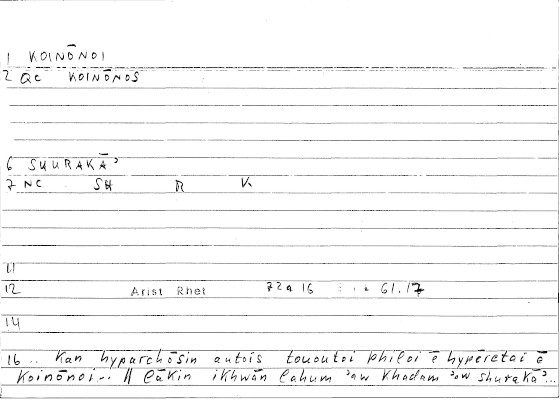 1 KOINŌNOI
2 QC KOINŌNOS
6 SHURAKĀʾ
7 NC SH R K
11
12 Arist Rhet 72a 16 61.17
14
16 .. Kan hyparchōsin autois toioutoi philoi ē hypēretai ē
Koinōnoi.. // lākin ikhwān lahum ʾaw khadam ʾaw shurakāʾ...